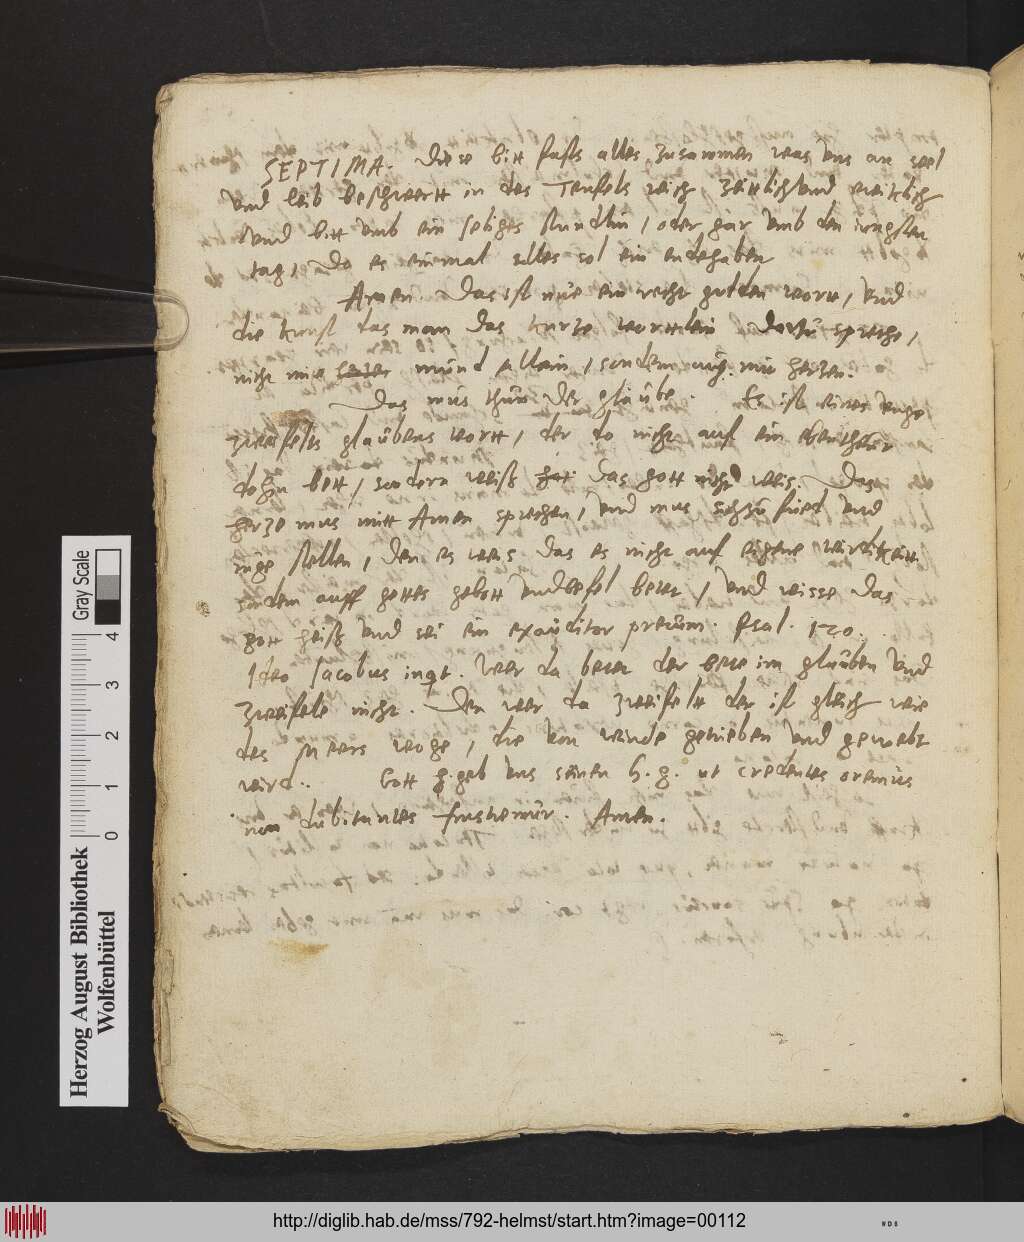 SEPTIMA. Diese bitt fasts alles zusammen was uns an seel
und leib beschwertt in des Teufels reich, zeittlich und ewiklich
und bitt umb ein seliges stundlin, oder gar umb den iungsten
tag, do es einmal alles sol ein ende haben
Amen. Das ist nur ein recht gulden wortt, und
die kunst das man das kurze worttlein dorzu spreche,
nicht mit mund allein, sondern auch mit herzen.
Das mus thun der glaube. Es ist eines
zweifels glaubens wortt, der do nicht auf ein ebentheur
dohin bett, sondern weiß das gott nicht Das
herze mus mitt Amen sprechen, und mus sich zu fried und
ruge stellen, den es weis das es nicht auf eigene wirdikeitt
sondern auff gottes gebott und befel betet, und wisse das
gott heiß und sei ein exauditor precum. Psal. 120.
Ideo Jacobus inqt. Wer da betet der bete im glauben und
zweifele nicht. Den wer da zweifelt der ist gleich wie
des meers woge, die von winde getrieben und gewebt
wird. Gott geb uns seinen h. g. ut credentes oremus
non dubitantes fructemur. Amen.
Herzog August Bibliothek
Wolfenbüttel
Gray Scale
0 1 2 3 4
http://diglib.hab.de/mss/792-helmst/start.htm?image=00112